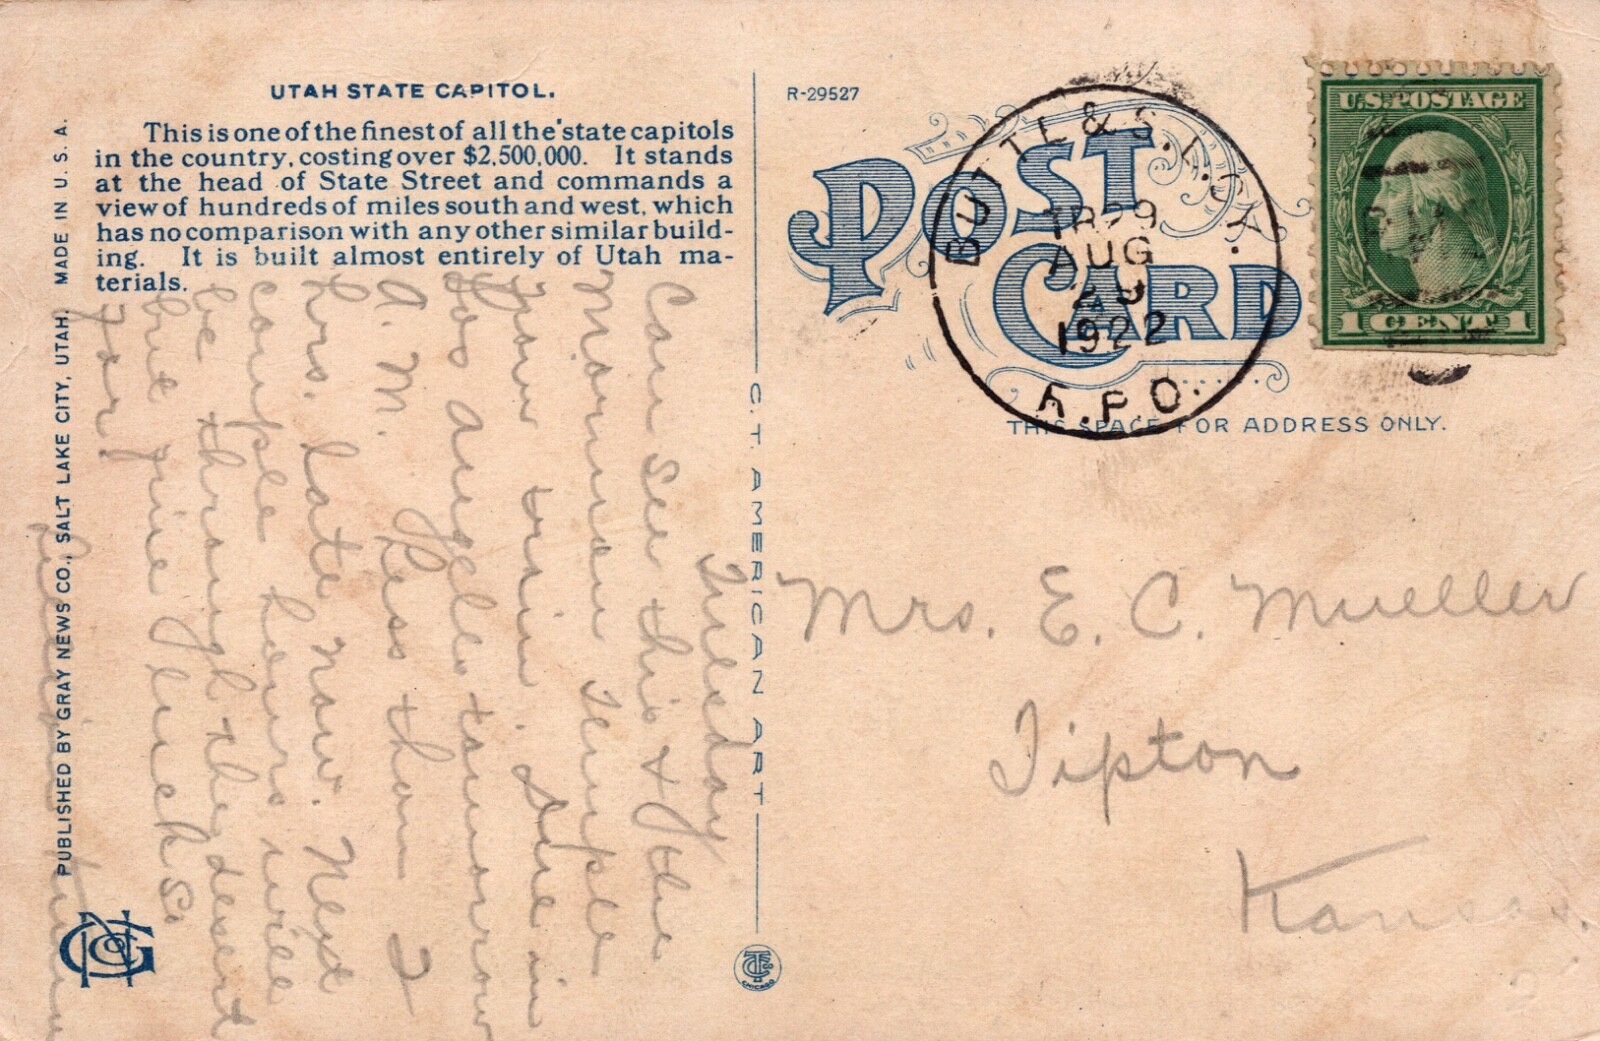 UTAH STATE CAPITOL.
This is one of the finest of all the state capitols
in the country, costing over $2,500,000. It stands
at the head of State Street and commands a
view of hundreds of miles south and west, which
has no comparison with any other similar build-
ing. It is built almost entirely of Utah ma-
terials.
PUBLISHED BY GRAY NEWS CO., SALT LAKE CITY, UTAH. MADE IN U. S. A.
Tuesday
Can see this + the
Mormon Temple
from train. Due in
Los Angeles tomorrow
A. M. Less than 2
hrs. late now. Next
couple hours will
be through the desert
but fine luck so
far.
C. T. AMERICAN ART
CHICAGO
R-29527
POST CARD
BUTTE & S. L. CY.
TR 29
AUG
29
1922
R.P.O.
U.S. POSTAGE
1 CENT 1
THIS SPACE FOR ADDRESS ONLY.
Mrs. E. C. Mueller
Tipton
Kansas.